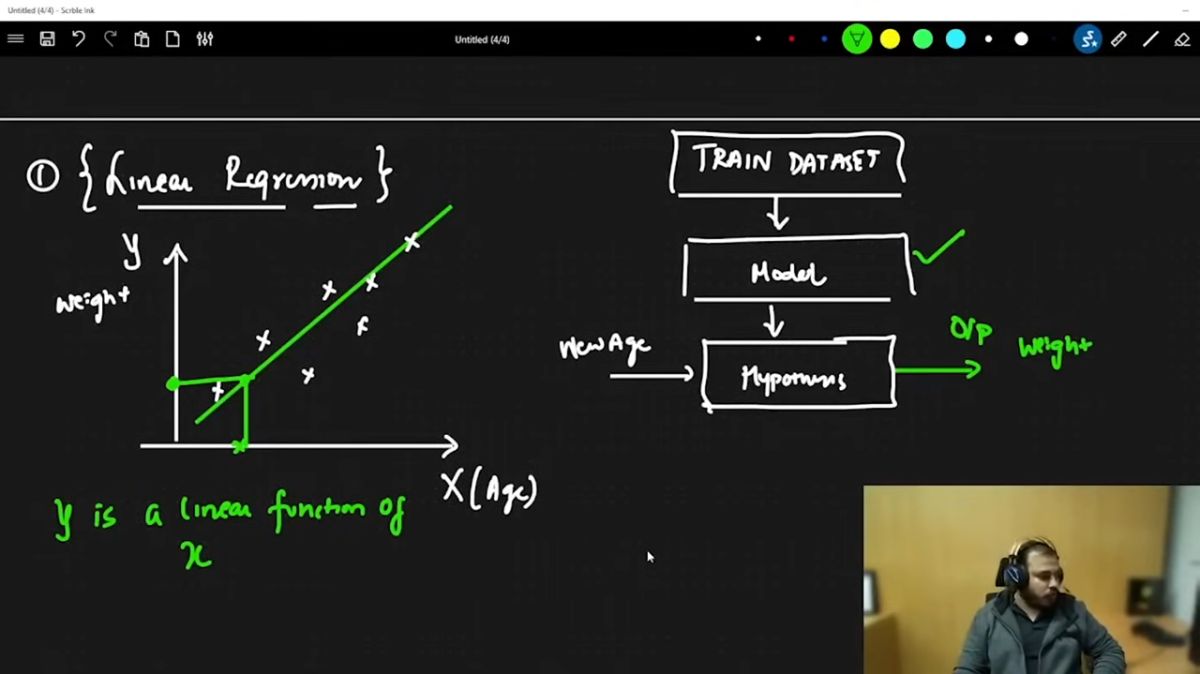 Untitled (4/4) - Scrble Ink
Untitled (4/4)
① {Linear Regression}
y
weight
X (Age)
y is a linear function of
x
TRAIN DATASET
Model
New Age
Hypothesis
O/P Weight